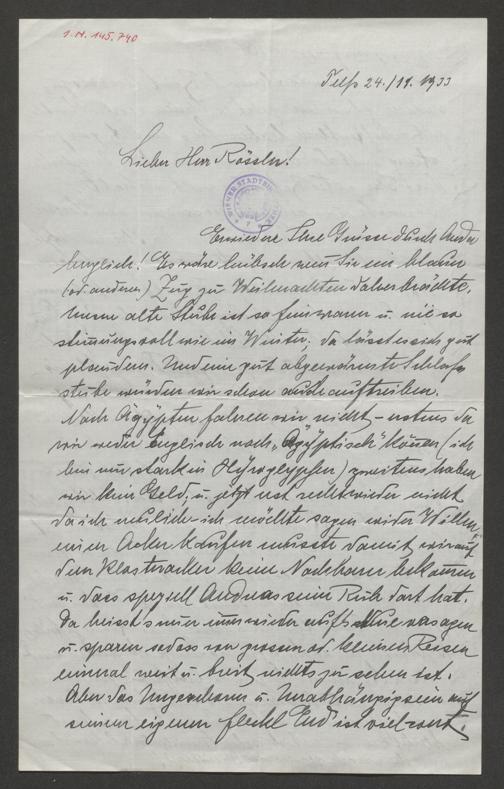 I.N. 145.740
Telfs 24./11. 1933
Lieber Herr Rössler!
WIENER STADTBIBLIOTHEK
Erwiedere Ihre Grüsse durch Andre
herzlich! Es wäre hübsch wenn Sie ein blauer
(od. anderer) Zug zu Weihnachten daherbrächte.
Meine alte Stube ist so feinwarm u. nie so
stimmungsvoll wie im Winter, da lässt es sich gut
plaudern. Und eine gut abgewärmte Schlaf
stube würden wir schon auch auftreiben.
Nach Ägypten fahren wir nicht – erstens da
wir weder Englisch noch „Ägyptisch" können (ich
bin nur stark in Hyroglyphen) zweitens haben
wir kein Geld, u. jetzt erst recht wieder nicht
da ich neulich – ich möchte sagen wider Willen
einen Acker kaufen musste damit wir auf
dem Klosteracker keine Nachbarn bekommen
u. dass speziell Andreas seine Ruh dort hat.
Da heisst's nun immer wieder aufs Neue versagen
u. sparen sodass von grossen od. kleinen Reisen
einmal weit u. breit nichts zu sehen ist.
Aber das Ungeschoren u. Unabhängigsein auf
seinem eigenen fleckl Erd' ist viel wert.